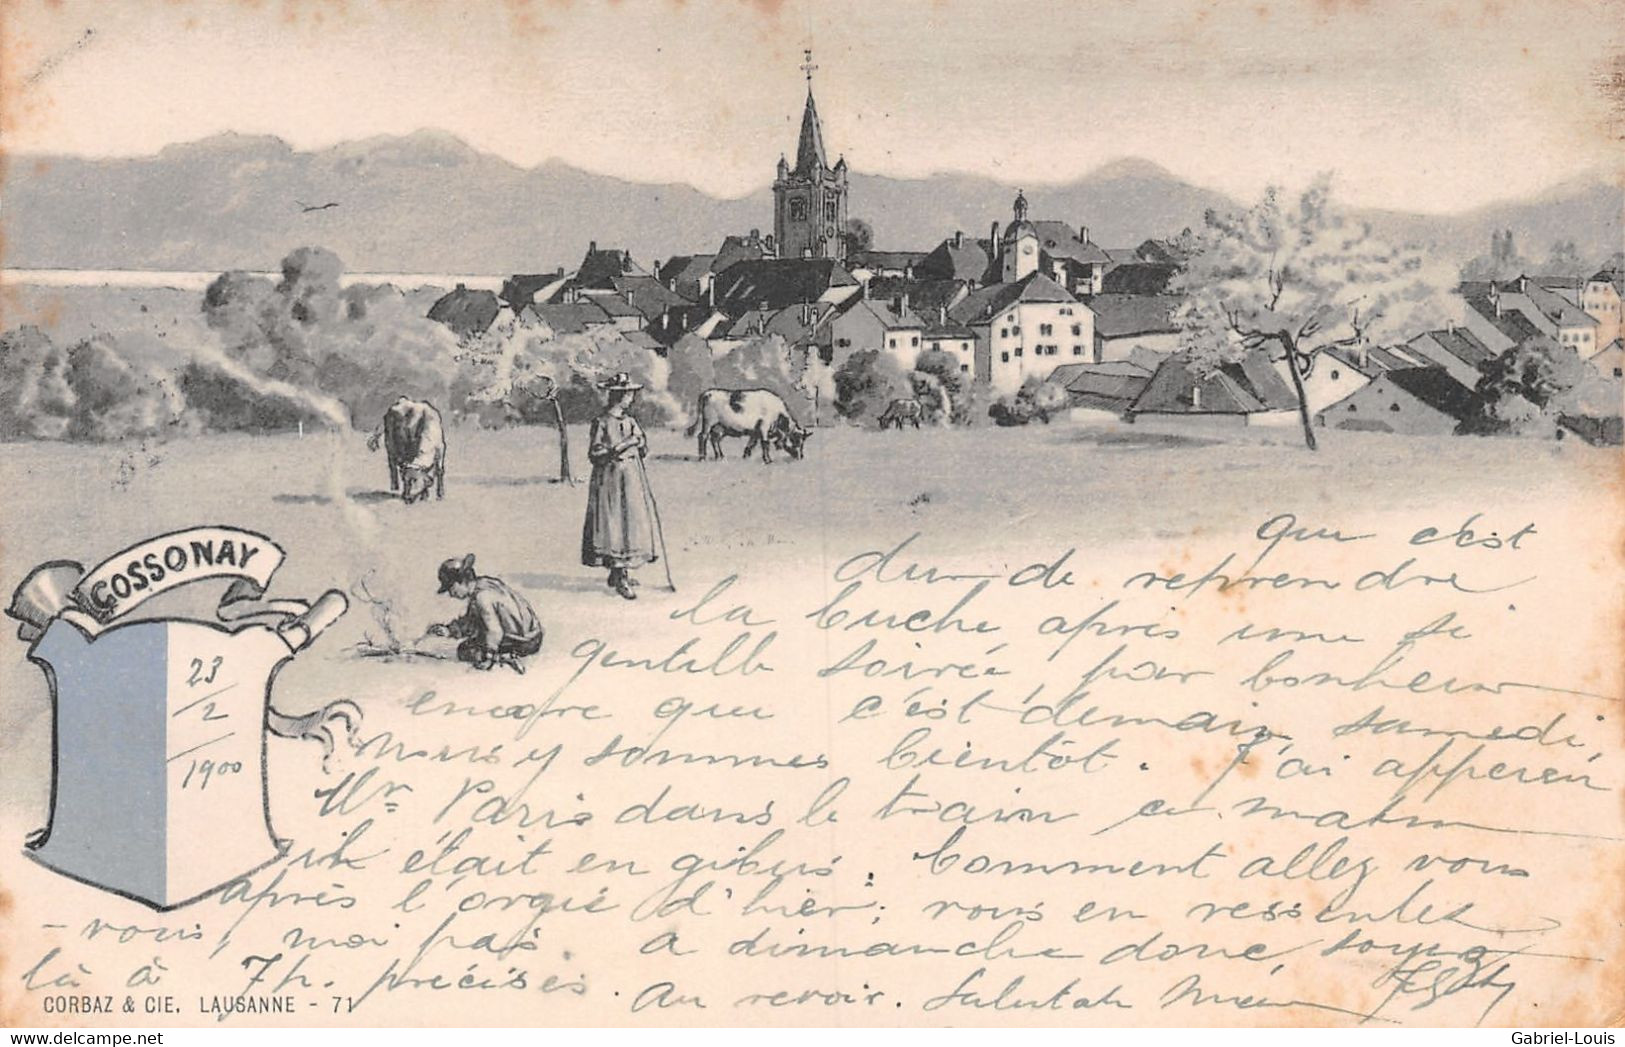 COSSONAY
23
/2
/1900
que c'est
dur de reprendre
la buche après une si
gentille soirée, par bonheur
encore que c'est demain samedi,
nous y sommes bientôt. J'ai apperçu
Mr Paris dans le train ce matin
il était en gibus. Comment allez vous
après l'orgie d'hier; vous en ressentez
-vous, moi pas. A dimanche donc, soyez
là à 7h. précises. Au revoir.
CORBAZ & CIE. LAUSANNE - 71
Gabriel-Louis